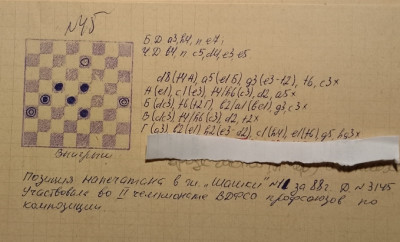 №45
Б. Д a3, h4, п e7;
Ч. Д b4, п c5, d4, e3, e5
d8(f4A), a5(e1Б), g3(e3-f2), f6, c3×
А (e1), c1(e3), f4/b6(c3), d2, a5×
Б (dc3), f6(f2Г), b2/a1(вe1), g3, c3×
В (dc3), f4/b6(c3), d2, f2×
Г (g3), b2(e1), b2(e3-d2), c1(h4), e1(f6), g5, h6 g3×
Выигрыш
Позиция напечатана в ж. „Шашки" №11 за 88г. Д №3145
Участвовала во II чемпионате ВДФСО профсоюзов по
композиции.